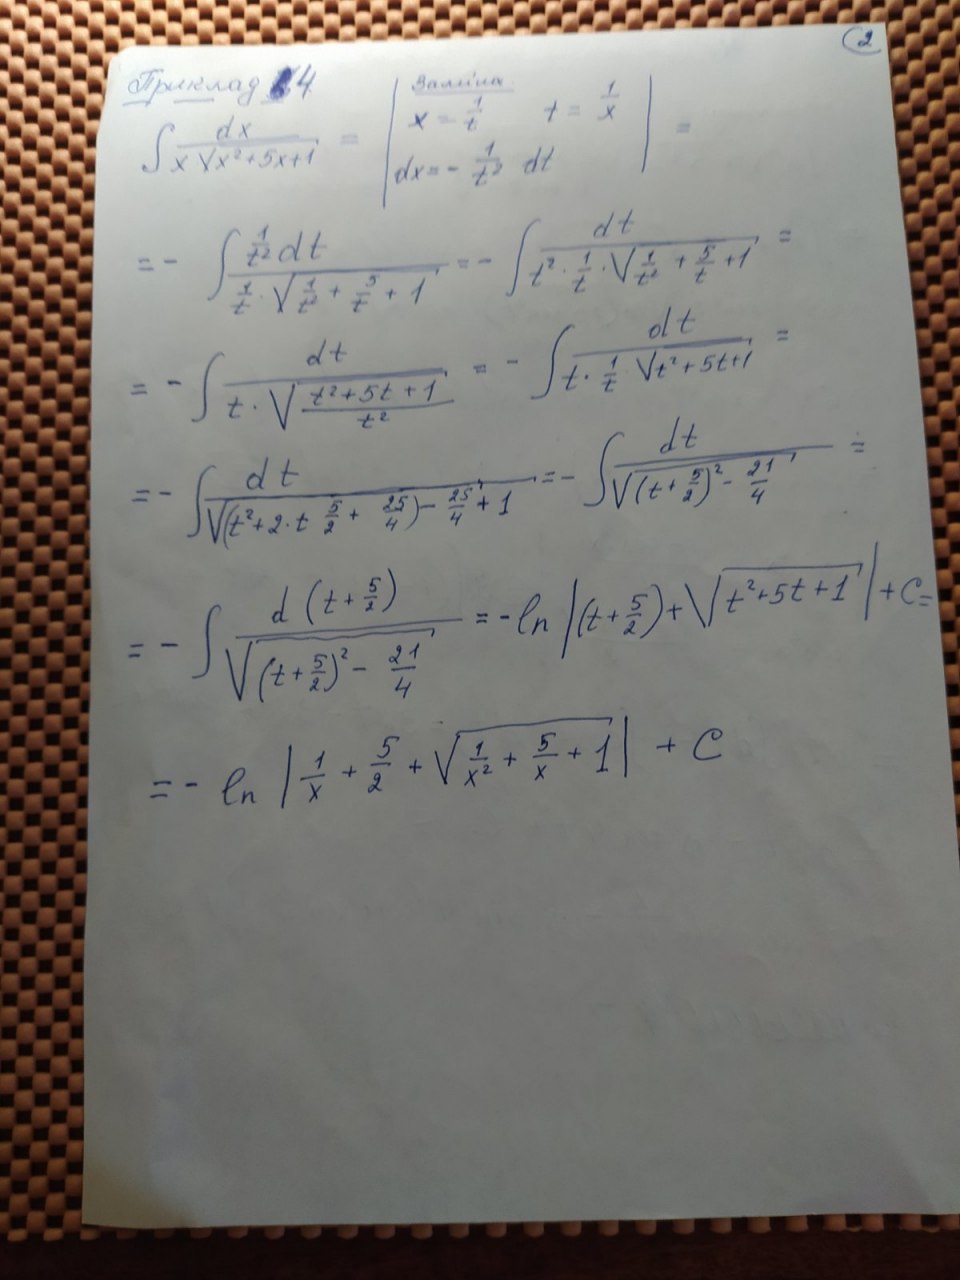 2
Приклад 4
∫ dx / (x √(x²+5x+1)) = | Заміна x = 1/t t = 1/x dx = - 1/t² dt | =
= - ∫ (1/t² dt) / (1/t · √(1/t² + 5/t + 1)) = - ∫ dt / (t² · 1/t · √(1/t² + 5/t + 1)) =
= - ∫ dt / (t · √((t²+5t+1)/t²)) = - ∫ dt / (t · 1/t · √(t²+5t+1)) =
= - ∫ dt / √((t²+2·t 5/2 + 25/4) - 25/4 + 1) = - ∫ dt / √((t + 5/2)² - 21/4) =
= - ∫ d(t + 5/2) / √((t + 5/2)² - 21/4) = - ln |(t + 5/2) + √(t²+5t+1)| + C =
= - ln | 1/x + 5/2 + √(1/x² + 5/x + 1) | + C